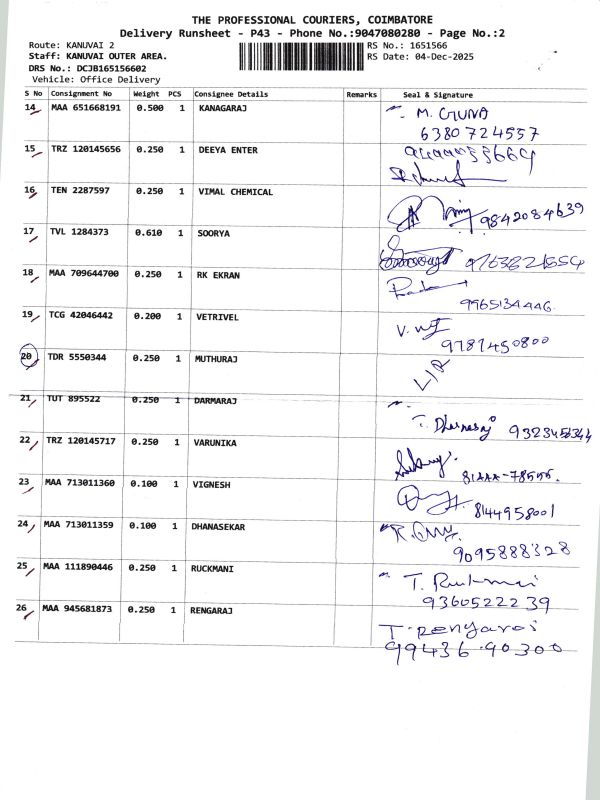 THE PROFESSIONAL COURIERS, COIMBATORE
Delivery Runsheet - P43 - Phone No.:9047080280 - Page No.:2
Route: KANUVAI 2 RS No.: 1651566
Staff: KANUVAI OUTER AREA. RS Date: 04-Dec-2025
DRS No.: DCJB165156602
Vehicle: Office Delivery
S No Consignment No Weight PCS Consignee Details Remarks Seal & Signature
14 MAA 651668191 0.500 1 KANAGARAJ M. GUNA
6380724557
15 TRZ 120145656 0.250 1 DEEYA ENTER
16 TEN 2287597 0.250 1 VIMAL CHEMICAL 9842084639
17 TVL 1284373 0.610 1 SOORYA
18 MAA 709644700 0.250 1 RK EKRAN
9965134446.
19 TCG 42046442 0.200 1 VETRIVEL
9787450800
20 TDR 5550344 0.250 1 MUTHURAJ
21 TUT 895522 0.250 1 DARMARAJ
22 TRZ 120145717 0.250 1 VARUNIKA
23 MAA 713011360 0.100 1 VIGNESH
8144958001
24 MAA 713011359 0.100 1 DHANASEKAR
9095888328
25 MAA 111890446 0.250 1 RUCKMANI
9360522239
26 MAA 945681873 0.250 1 RENGARAJ T. rengaroi
99436 90300